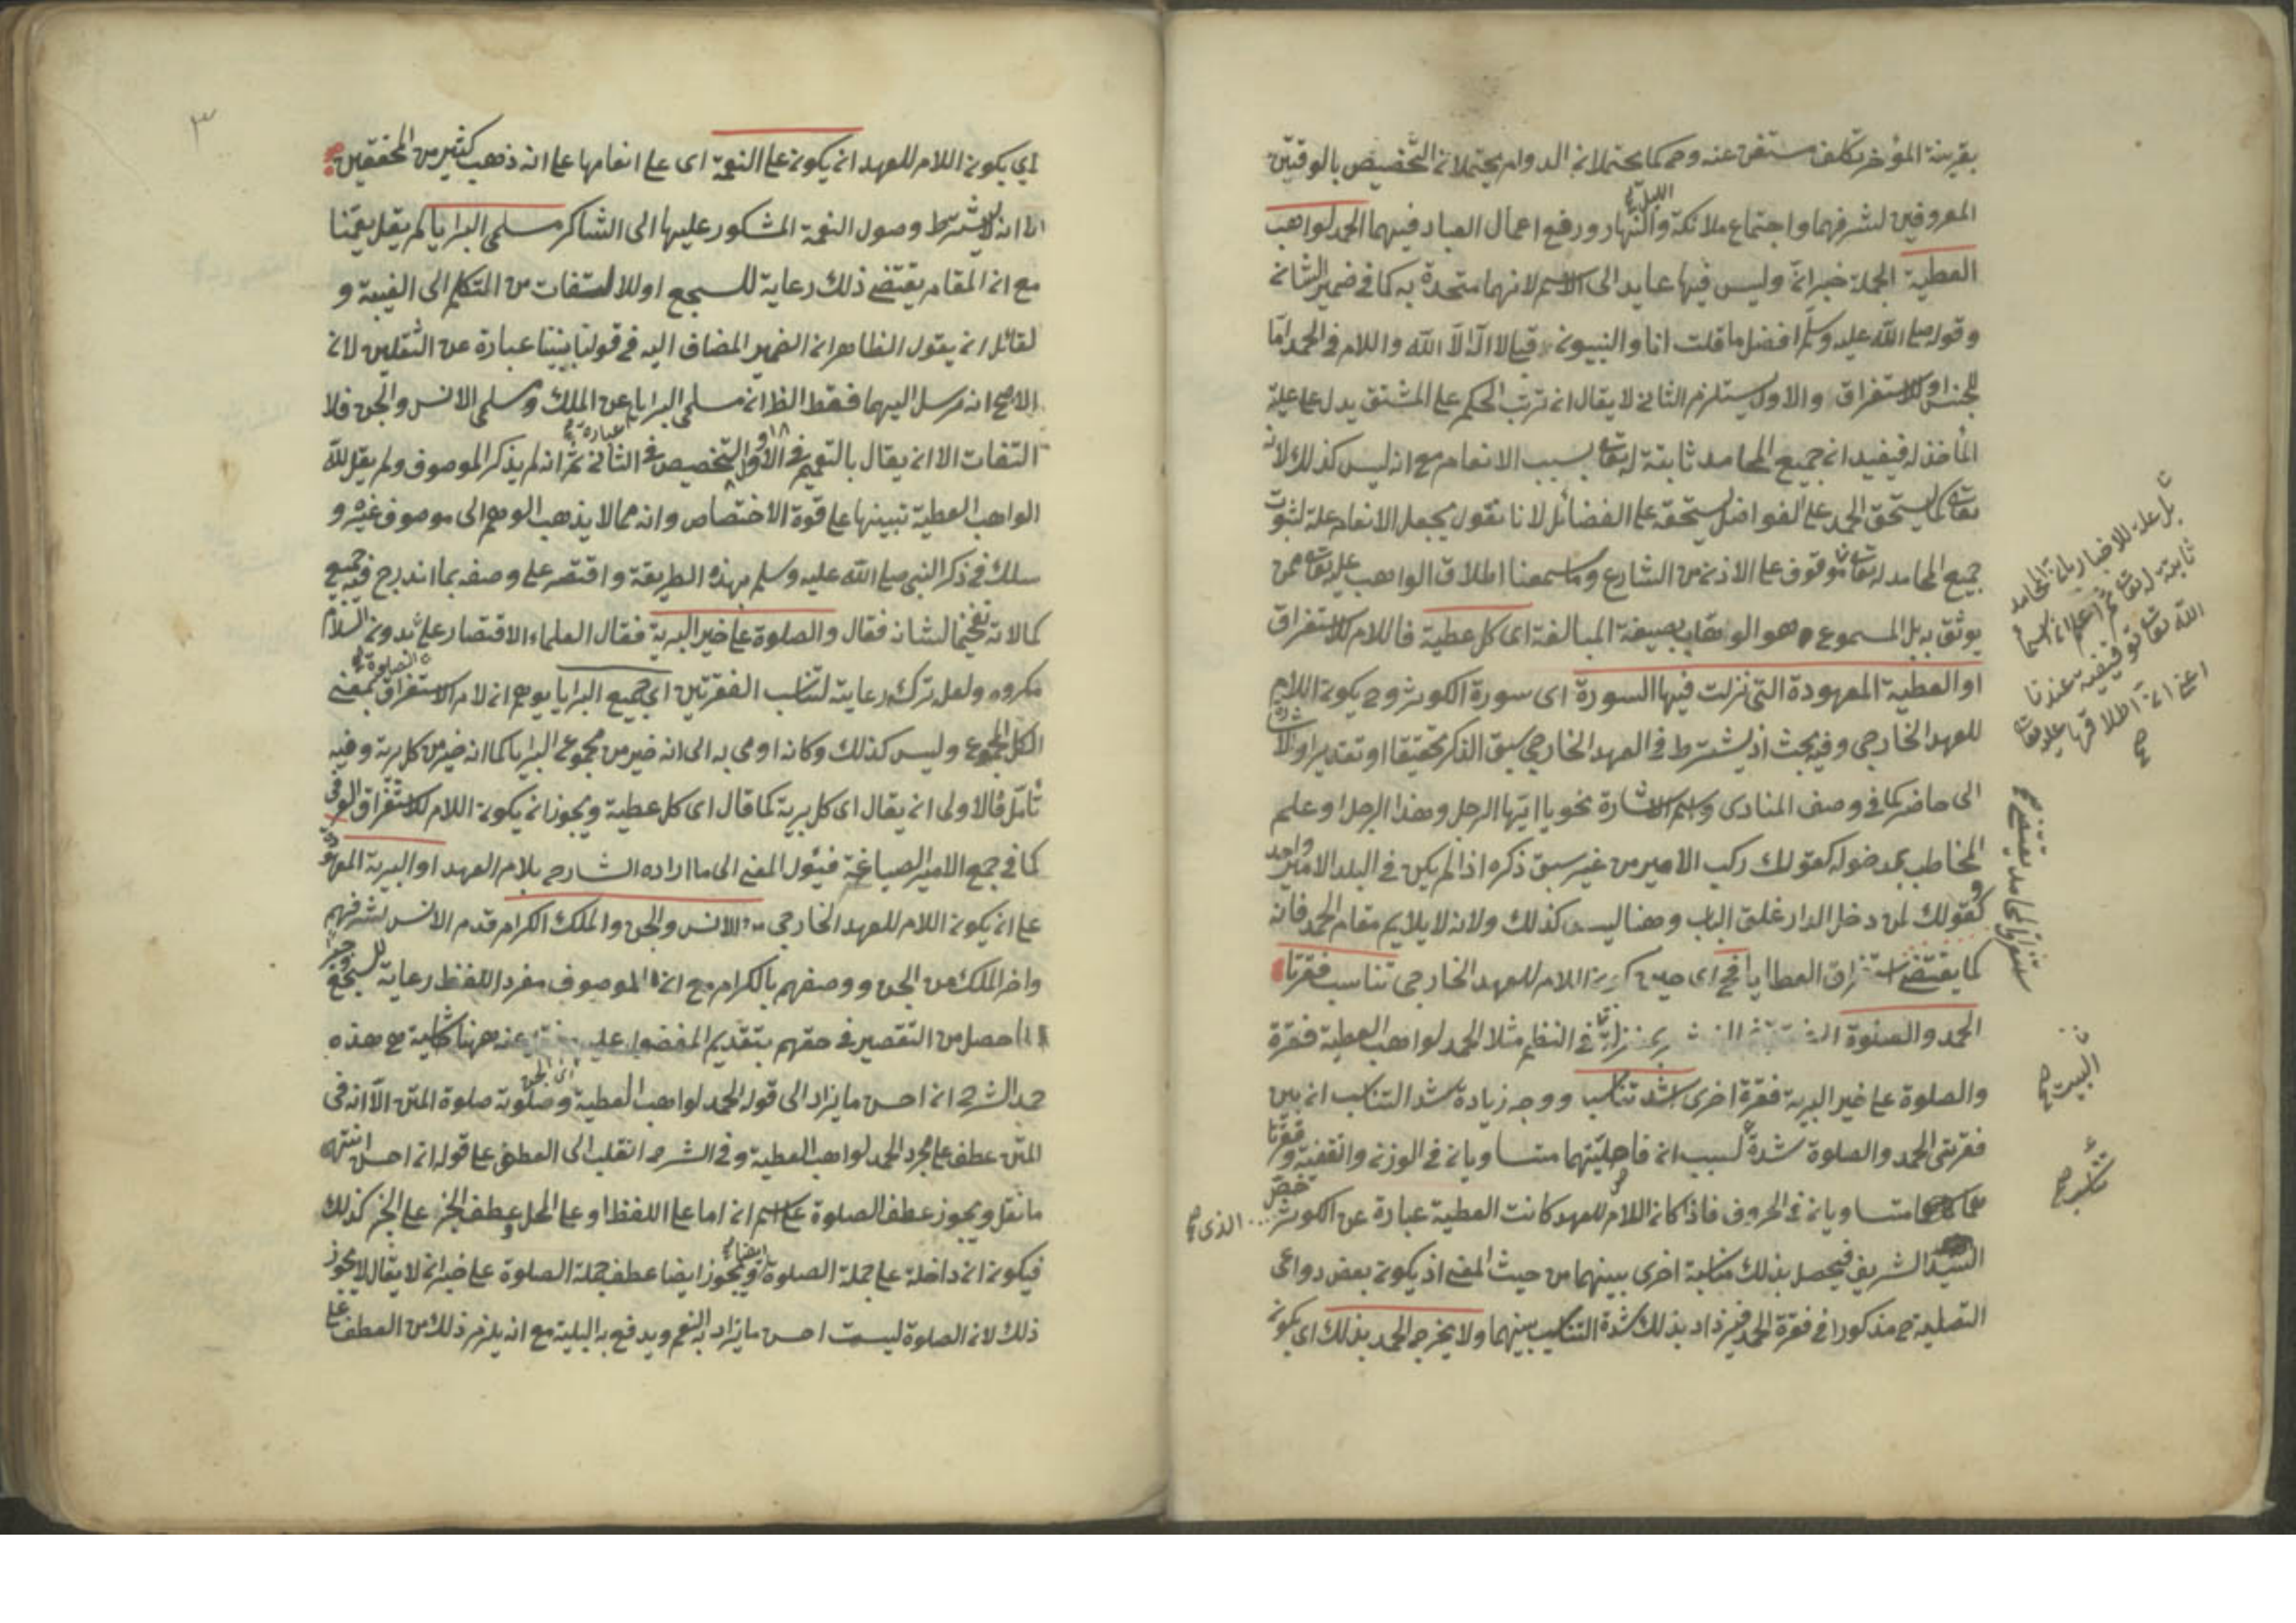 بقرينة المؤخر تكلف مستغن عنه وح كما يحتملان الدوام يحتملان التخصيص بالوقتين
المعروفين لشرفهما واجتماع ملائكة الليل والنهار ورفع اعمال العباد فيهما الحمد لواهب
العطية الجملة خبر ان وليس فيها عايد الى الاسم لانهما متحدة به كما في ضمير الشان
وقوله صلى الله عليه وسلم افضل ما قلت انا والنبيون قبلي لا اله الا الله واللام في الحمد اما
للجنس او للاستغراق والاول يستلزم الثاني لا يقال ان ترتب الحكم على المشتق يدل على علية
المأخذ له فيفيد ان جميع المحامد ثابتة له تعالى بسبب الانعام مع انه ليس كذلك لانه
تعالى كما يستحق الحمد على الفواضل يستحقه على الفضائل لانا نقول يجعل الانعام علة لثبوت
جميع المحامد له تعالى موقوف على الاذن من الشارع وما سمعنا اطلاق الواهب عليه تعالى ممن
يوثق به بل المسموع هو الوهاب بصيغة المبالغة اى كل عطية فاللام للاستغراق
او العطية المعهودة التى نزلت فيها السورة اى سورة الكوثر وح يكون اللام
للعهد الخارجى وفيه بحث اذ يشترط في العهد الخارجي سبق الذكر تحقيقا او تقديرا والاشارة
الى حاضر كما في وصف المنادى واسم الاشارة نحو يا ايها الرجل وهذا الرجل او علم
المخاطب بمدخوله كقولك ركب الامير من غير سبق ذكره اذا لم يكن في البلد الا امير واحد
وكقولك لمن دخل الدار غلق الباب وهنا ليس كذلك ولانه لا يلايم مقام الحمد فانه
كما يقتضى استغراق العطايا فح اى حين كون اللام للعهد الخارجى تناسب فقرتا
الحمد والصلوة في النظم مثلا الحمد لواهب العطية فقرة
والصلوة على خير البرية فقرة اخرى اشد تناسبا ووجه زيادة شد التناسب ان بين
فقرتى الحمد والصلوة شدة لسبب ان فاصلتيهما متساويان في الوزن والتقفية وفقرتا
متساويان في الحروف فاذا كان اللام للعهد كانت العطية عبارة عن الكوثر الذى خص
السيد الشريف فيحصل بذلك مناسبة اخرى بينهما من حيث المعنى اذ يكون بعض دواعى
التصلية ح مذكورا في فقرة الحمد فيزداد بذلك شدة التناسب بينهما ولا يخرج الحمد بذلك اى بكون
بل علة للاخبار بان المحامد
ثابتة له تعالى ثم اعلم ان اسما
الله تعالى توقيفية عندنا
اعنى ان اطلاقها عليه تعالى
صح
استغراق المحامد يقتضى صح
البيت صح
تناسب صح
٣
اى بكون اللام للعهد ان يكون على النعمة اى على انعامها على انه ذهب كثير من المحققين
الى انه لا يشترط وصول النعمة المشكور عليها الى الشاكر مسلمى البرايا لم يقل نعمنا
مع ان المقام يقتضى ذلك رعاية للسجع او للالتفات من المتكلم الى الغيبة و
لقائل ان يقول الظاهر ان الضمير المضاف اليه في قولنا نبينا عبارة عن الثقلين لان
الاصح انه مرسل اليهما فقط الظ ان مسلمى البرايا عن الملك ومسلمى الانس والجن فلا
التفات الا ان يقال بالتعميم في الاول او التخصيص في الثاني ثم انه لم يذكر الموصوف ولم يقل لله
الواهب العطية تبينها على قوة الاختصاص وانه مما لا يذهب الوهم الى موصوف غيره و
سلك في ذكر النبي صلى الله عليه وسلم بهذه الطريقة واقتصر على وصفه بما اندرج فيه جميع
كمالاته تفخيما لشانه فقال والصلوة على خير البرية فقال العلماء الاقتصار على الصلوة بدون السلام
مكروه ولعل تركه رعاية لتناسب الفقرتين اى جميع البرايا يوهم ان لام الاستغراق بمعنى
الكل المجموع وليس كذلك وكانه اومى به الى انه خير من مجموع البرايا كما انه خير من كل برية وفيه
تأمل فالاولى ان يقال اى كل برية كما قال اى كل عطية ويجوز ان يكون اللام للاستغراق العرفى
كما في جمع الامير الصياغة فيئول المعنى الى ما اراده الشارح بلام العهد او البرية المعهودة
على ان يكون اللام للعهد الخارجى من الانس والجن والملك الكرام قدم الانس لشرفهم
واخر الملك من الجن ووصفهم بالكرام مع ان الموصوف مفرد اللفظ رعاية للسجع وجبر
لما حصل من التقصير في حقهم بتقديم المفضول عليه عنه ههنا شكاية مع هذه
حمد الشرح ان احسن ما يزاد الى قوله الحمد لواهب العطية وصلوته صلوة المتن الا انه في
المتن عطف على مجرد الحمد لواهب العطية وفي الشرح انقلب الى العطف على قوله ان احسن انتهى
ما نقل ويجوز عطف الصلوة على اسم ان اما على اللفظ او على المحل وعطف الخبر على الخبر كذلك
فيكون ان داخلة على جملة الصلوة ايضا ويجوز ايضا عطف جملة الصلوة على خبر ان لا يقال لا يجوز
ذلك لان الصلوة ليست احسن ما يزاد به النعم ويدفع به البلية مع انه يلزم ذلك من العطف على